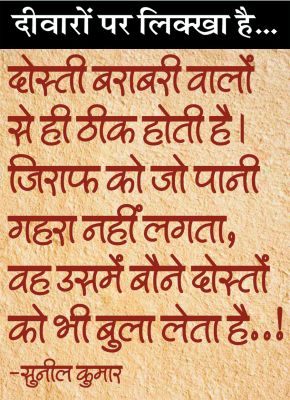 दीवारों पर लिक्खा है...
दोस्ती बराबरी वालों
से ही ठीक होती है।
जिराफ को जो पानी
गहरा नहीं लगता,
वह उसमें बौने दोस्तों
को भी बुला लेता है..!
-सुनील कुमार